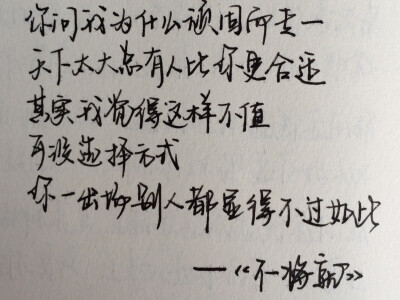 你问我为什么顽固而专一
天下太大总有人比你更合适
其实我觉得这样不值
可没选择方式
你一出场别人都显得不过如此
——《不将就》